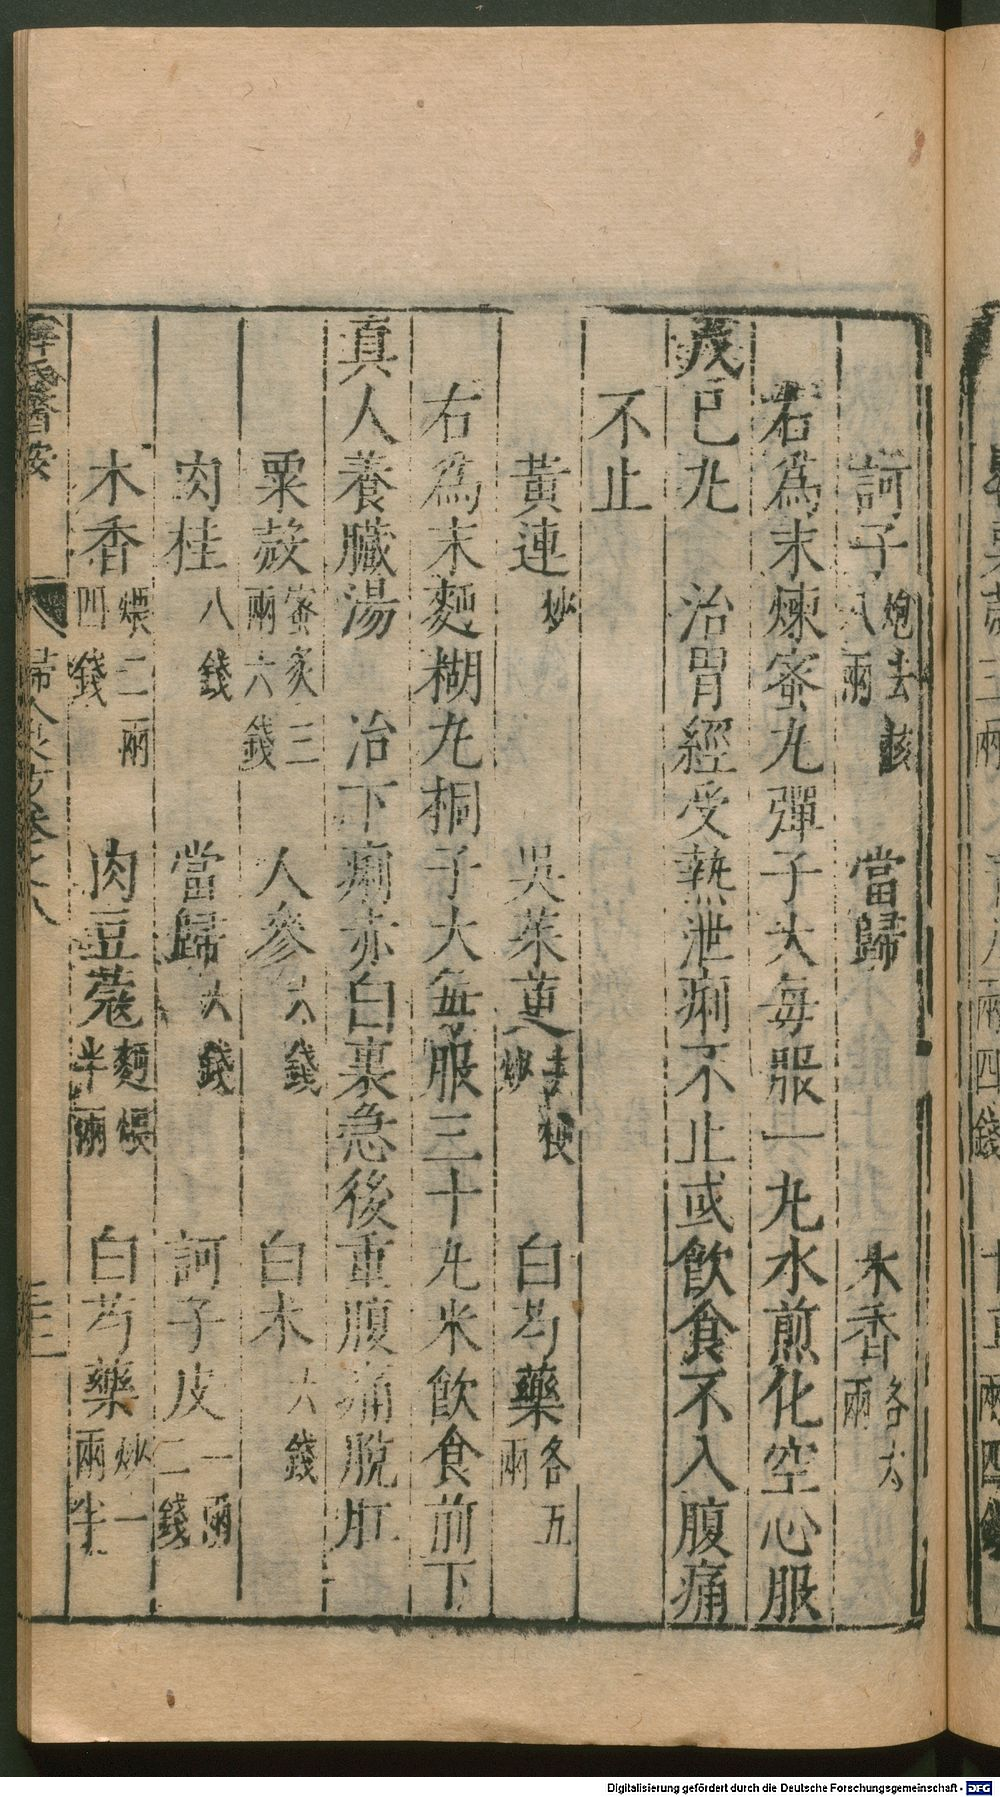 訶子炮去核八兩　當歸　木香各六兩
右為末煉蜜丸彈子大每服一丸水煎化空心服
戊巳丸　治胃經受熱泄痢不止或飲食不入腹痛
不止
黃連炒　吳茱萸去梗炒　白芍藥各五兩
右為末麪糊丸桐子大每服三十丸米飲食前下
真人養臟湯　治下痢赤白裏急後重腹痛脫肛
粟殼蜜炙三兩六錢　人參六錢　白木六錢
肉桂八錢　當歸六錢　訶子皮一兩二錢
木香煨二兩四錢　肉豆蔻麪煨半兩　白芍藥炒一兩半
醫按　婦人良方卷之八
Digitalisierung gefördert durch die Deutsche Forschungsgemeinschaft - DFG